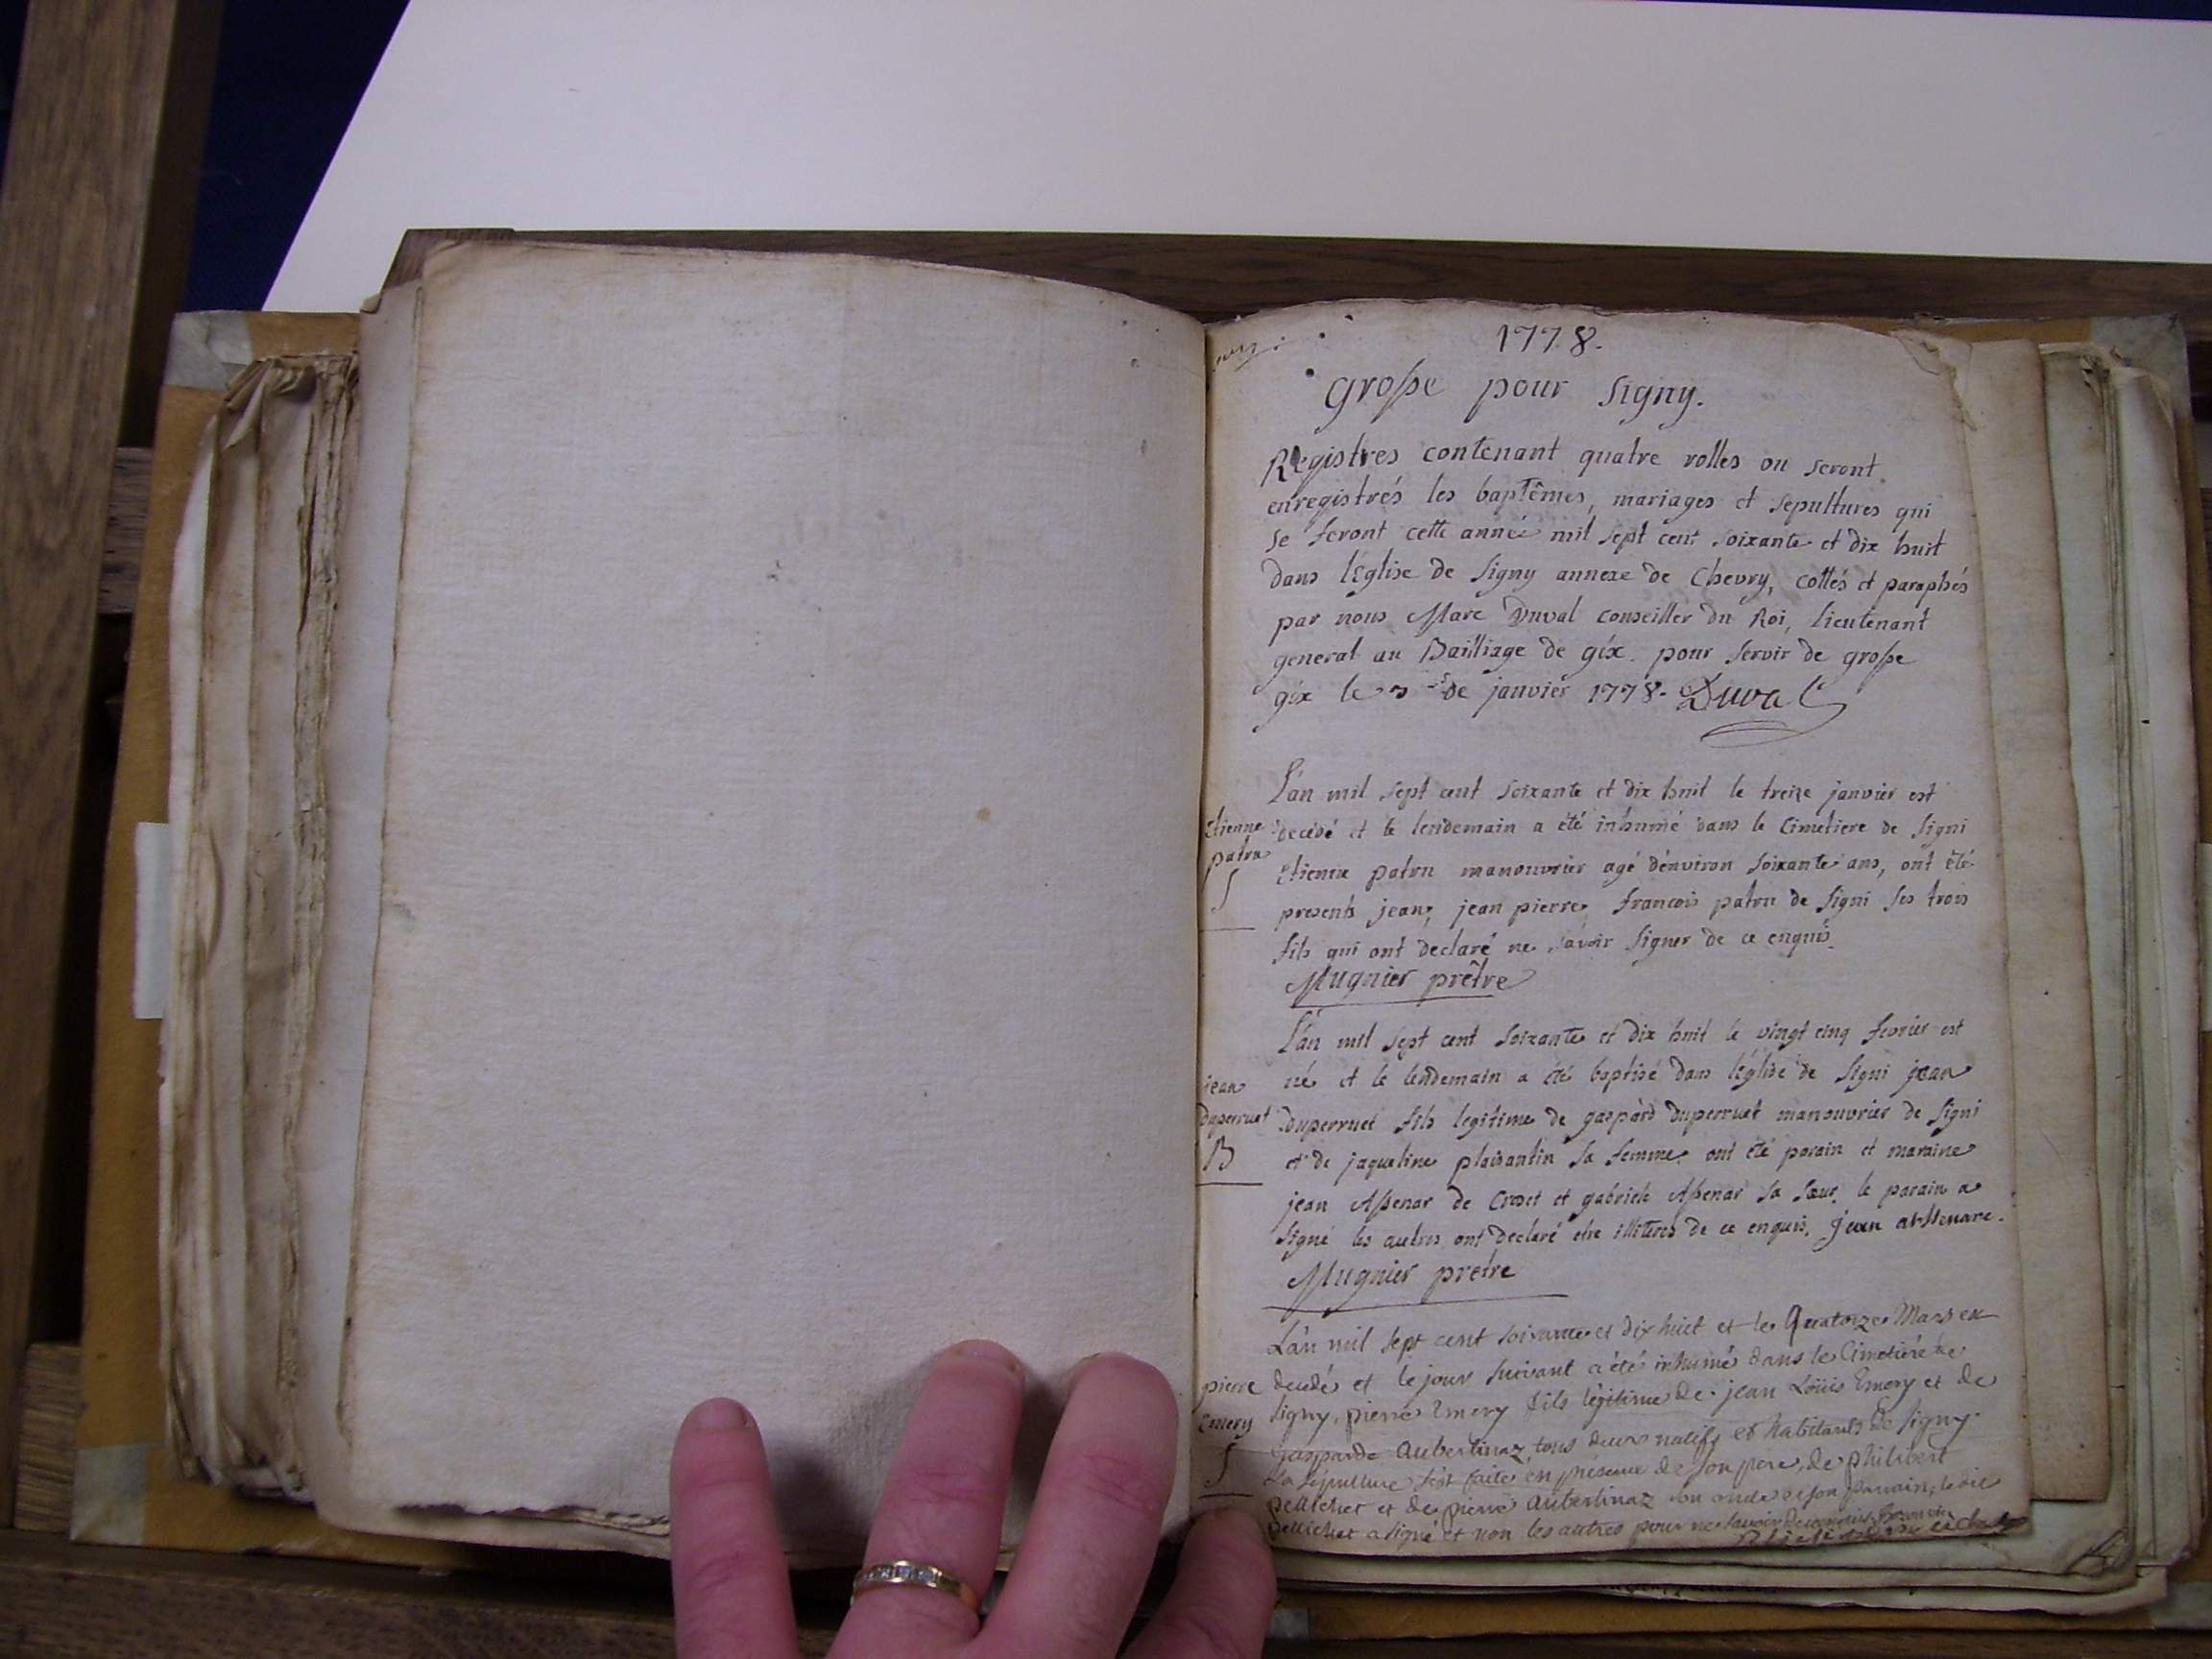 1778.
grosse pour signy.
Registres contenant quatre rolles ou seront
enregistrés les baptêmes, mariages et sepultures qui
se feront cette année mil sept cent soixante et dix huit
dans l'Eglise de signy annexe de Chevry, cottés et paraphés
par nous Marc Duval conseiller du Roi, lieutenant
general au Bailliage de géx. pour servir de grosse
géx le de janvier 1778. Duval
L'an mil sept cent soixante et dix huit le treize janvier est
Etienne patru
decédé et le lendemain a été inhumé dans le Cimetiere de signi
Etienne patru manouvrier agé d'environ soixante ans, ont été
S
presents jean, jean pierre, francois patru de signi ses trois
fils qui ont declaré ne savoir signer de ce enquis.
Mugnier prêtre
L'an mil sept cent soixante et dix huit le vingt cinq fevrier est
jean duperruet
né et le lendemain a été baptisé dans l'église de signi jean
duperruet fils legitime de gaspard duperruet manouvrier de signi
B
et de jaqueline plaisantin sa femme. ont été parain et maraine
jean Assenar de Croset et gabriele Assenar sa sœur. le parain a
signé les autres ont declaré etre illiteres de ce enquis. jean
Mugnier pretre
L'an mil sept cent soixante et dix huit et le Quatorze Mars est
pierre Emery
decedé et le jour suivant a été inhumé dans le Cimetiére de
signy, pierre Emery fils légitime de jean Loüis Emery et de
S
Gasparde Aubertinaz tous deux natifs et habitants de signy.
La sépulture s'est faite en présence de son pere, de philibert
pellichet et de pierre Aubertinaz son oncle et son parrain, ledit
pellichet a signé et non les autres pour ne savoir